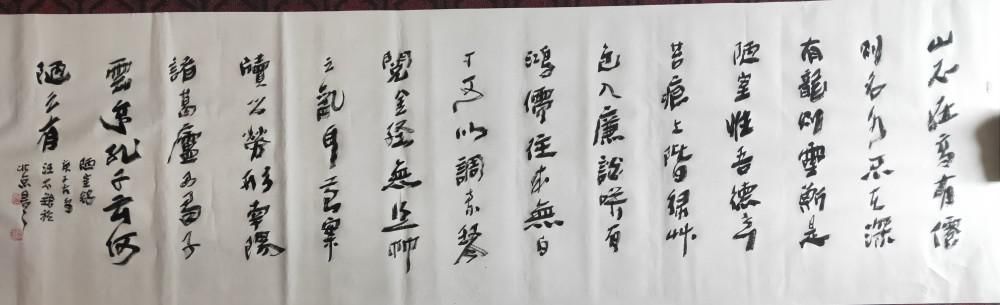 山不在高有僊
则名水不在深
有龍则靈斯是
陋室惟吾德馨
苔痕上階绿艸
色入廉談咲有
鴻儒往来無白
丁可以調素琴
閱金経無丝竹
之亂耳無案
牘之勞形南陽
諸葛廬西蜀子
雲亭孔子云何
陋之有
陋室銘
庚子年
北京